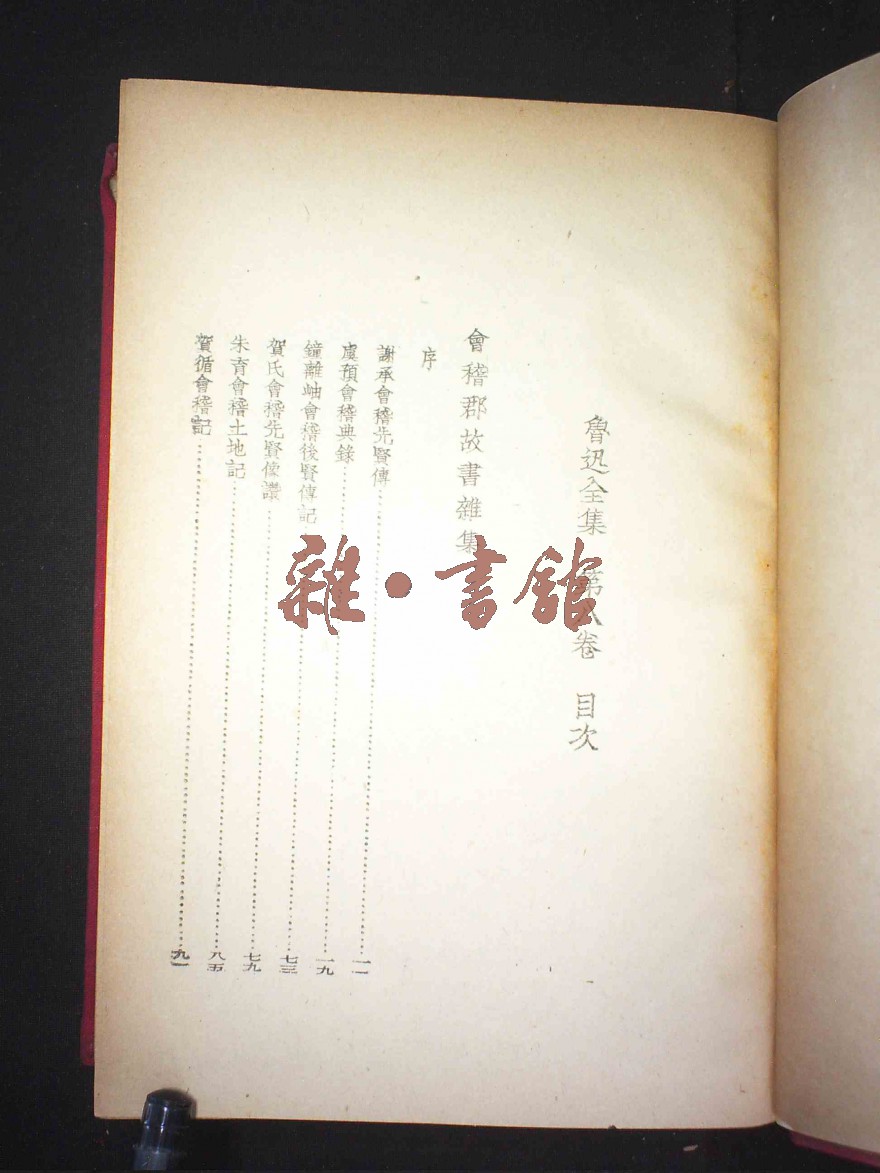 魯迅全集 第八卷 目次
會稽郡故書雜集
序
謝承會稽先賢傳……一一
虞預會稽典錄……一九
鐘離岫會稽後賢傳記……七三
賀氏會稽先賢像讚……七九
朱育會稽土地記……八五
賀循會稽記……九一
雜·書館